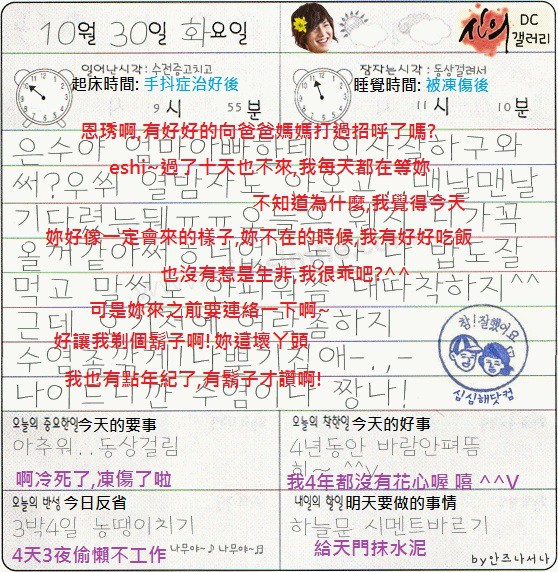 10월 30일 화요일
DC
신의 갤러리
일어난시각: 수전증고치고
起床時間: 手抖症治好後
9시 55분
잠자는시각: 동상걸려서
睡覺時間: 被凍傷後
11시 10분
恩琇啊,有好好的向爸爸媽媽打過招呼了嗎?
은수야 엄마아빠한테 인사잘하구와
eshi~過了十天也不來,我每天都在等妳
써? 우쒸 열밤자도 안오고... 맨날맨날
不知道為什麼,我覺得今天
기다렸는뎅ㅠㅠ 오늘은 왠지 니가 꼭
妳好像一定會來的樣子,妳不在的時候,我有好好吃飯
올거같아써 동안 나 밥도잘
也沒有惹是生非,我很乖吧?^^
먹고 말썽도 착하지^^
可是妳來之前要連絡一下啊~
근데 오기전에 연락좀하지
好讓我剃個鬍子啊!妳這壞丫頭
수염좀깎게 나쁜기집애-.,-
我也有點年紀了,有鬍子才讚啊!
나이드니깐 수염이나 짱나!
참! 잘했어요
심심해닷컴
오늘의 중요한일 今天的要事
아추워.. 동상걸림
啊冷死了,凍傷了啦
오늘의 착한일 今天的好事
4년동안 바람안펴뜸
히~ ^^v
我4年都沒有花心喔 嘻 ^^V
오늘의 반성 今日反省
3박4일 농땡이치기
4天3夜偷懶不工作
나무야~♪ 나무야~♬
내일의 할일 明天要做的事情
하늘문 시멘트바르기
給天門抹水泥
by안즈나서나